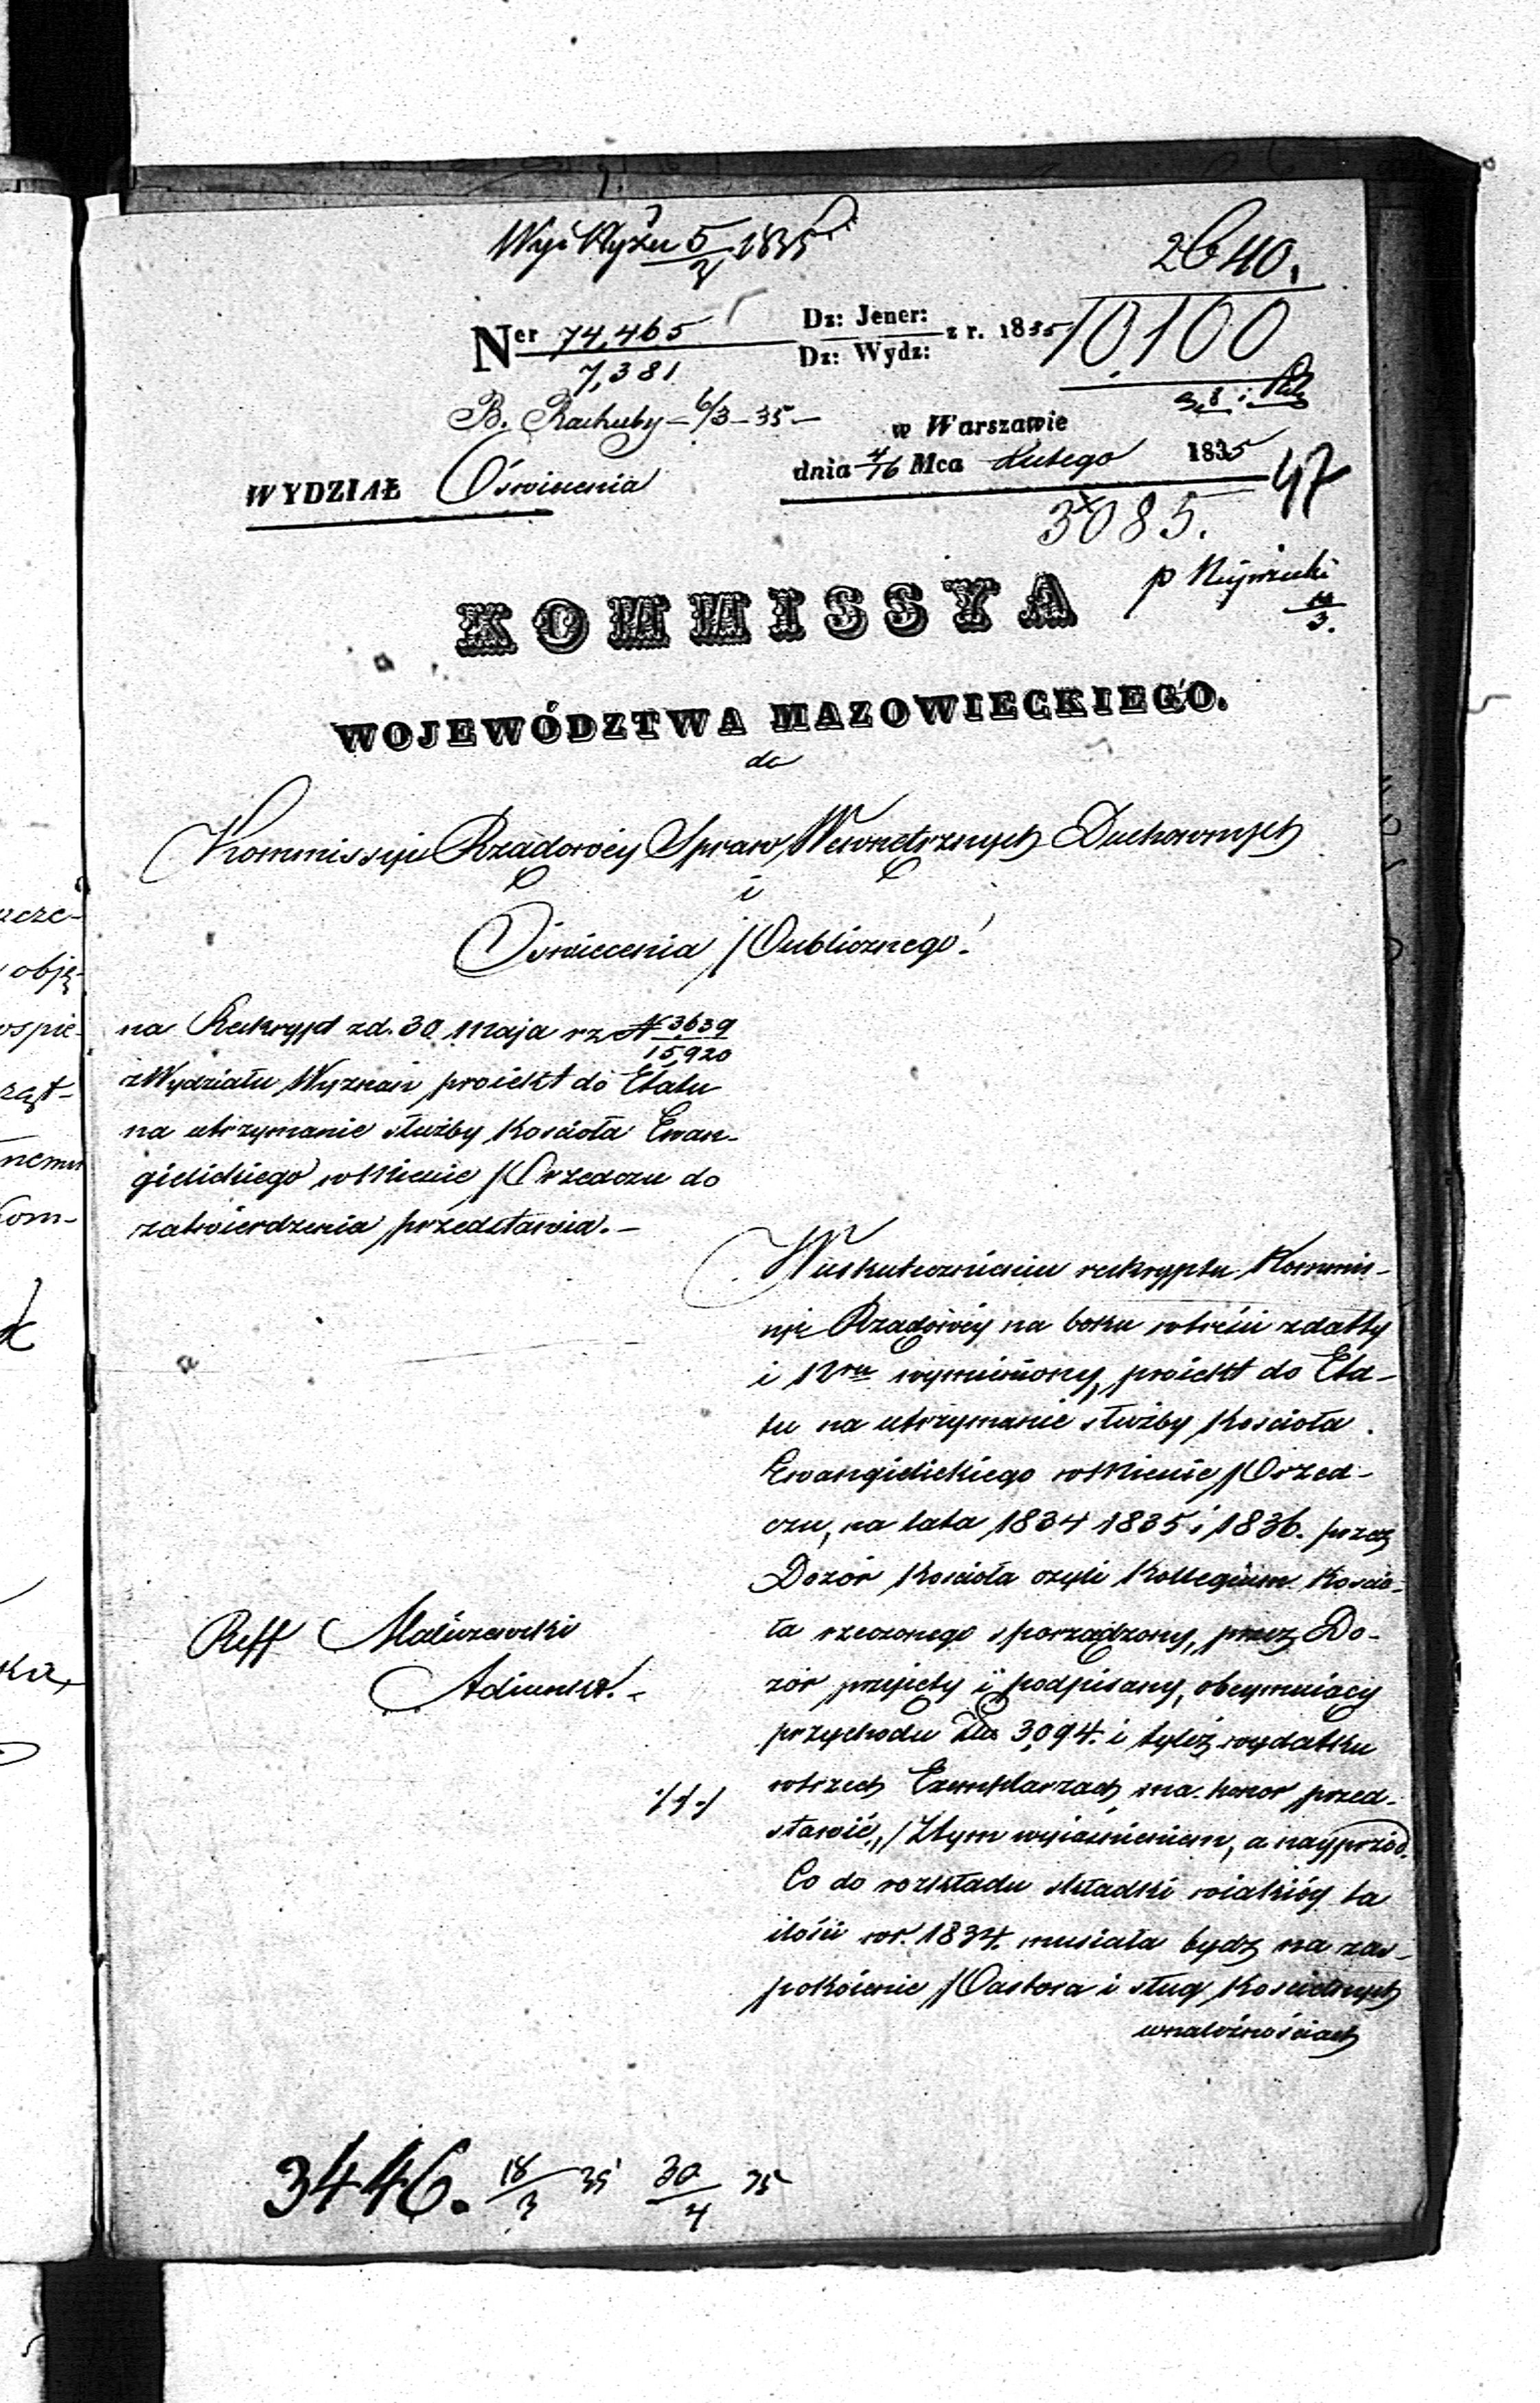 5/3 1835
2640.
Ner 74,465 Dz: Jener: z r. 1835
7,381 Dz: Wydz:
10,100
B. Rachuby – 6/3 – 35 –
w Warszawie
WYDZIAŁ Oświecenia
dnia 4/16 Mca Lutego 1835
47
3085.
p
3.
KOMMISSYA
WOJEWÓDZTWA MAZOWIECKIEGO.
do
Kommissyi Rządowéy Spraw Wewnętrznych Duchownych
i
Oświecenia Publicznego!
na Reskrypt z d. 30 Maja r z N 3639
15,920
z Wydziału Wyznań, proiekt do Etatu
na utrzymanie służby Kościoła Ewan-
gielickiego w Mieście Przedczu do
zatwierdzenia przedstawia. –
W uskutecznieniu reskryptu Kommis-
syi Rządowéy na boku w treści z datty
i Nru wymieniony, proiekt do Eta-
tu na utrzymanie służby Kościoła
Ewangielickiego w Mieście Przed-
czu, na lata 1834 1835 i 1836. przez
Dozór Kościoła czyli Kollegium Kościo-
ła rzeczonego sporządzony, przez Do-
zór przyięty i podpisany, obeymuiący
przychodu Złp 3,094. i tyleż wydatku
w trzech Exemplarzach, ma honor przed-
stawić, Z tym wyiaśnieniem, a nayprzód.
Co do rozkładu składki w iakiéy ta
ilości w r. 1834. musiała bydź na zas-
pokóienie Pastora i sług Kościelnych
w należnościach
Reff Maliszewski
Adiunkt. –
./././
3446. 18/3 35 30/4 35